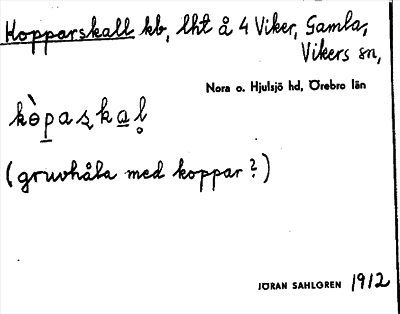 Kopparskall kb, lht å 4 Viker, Gamla,
Vikers sn,
Nora o. Hjulsjö hd, Örebro län
(gruvhåla med koppar?)
JÖRAN SAHLGREN 1912